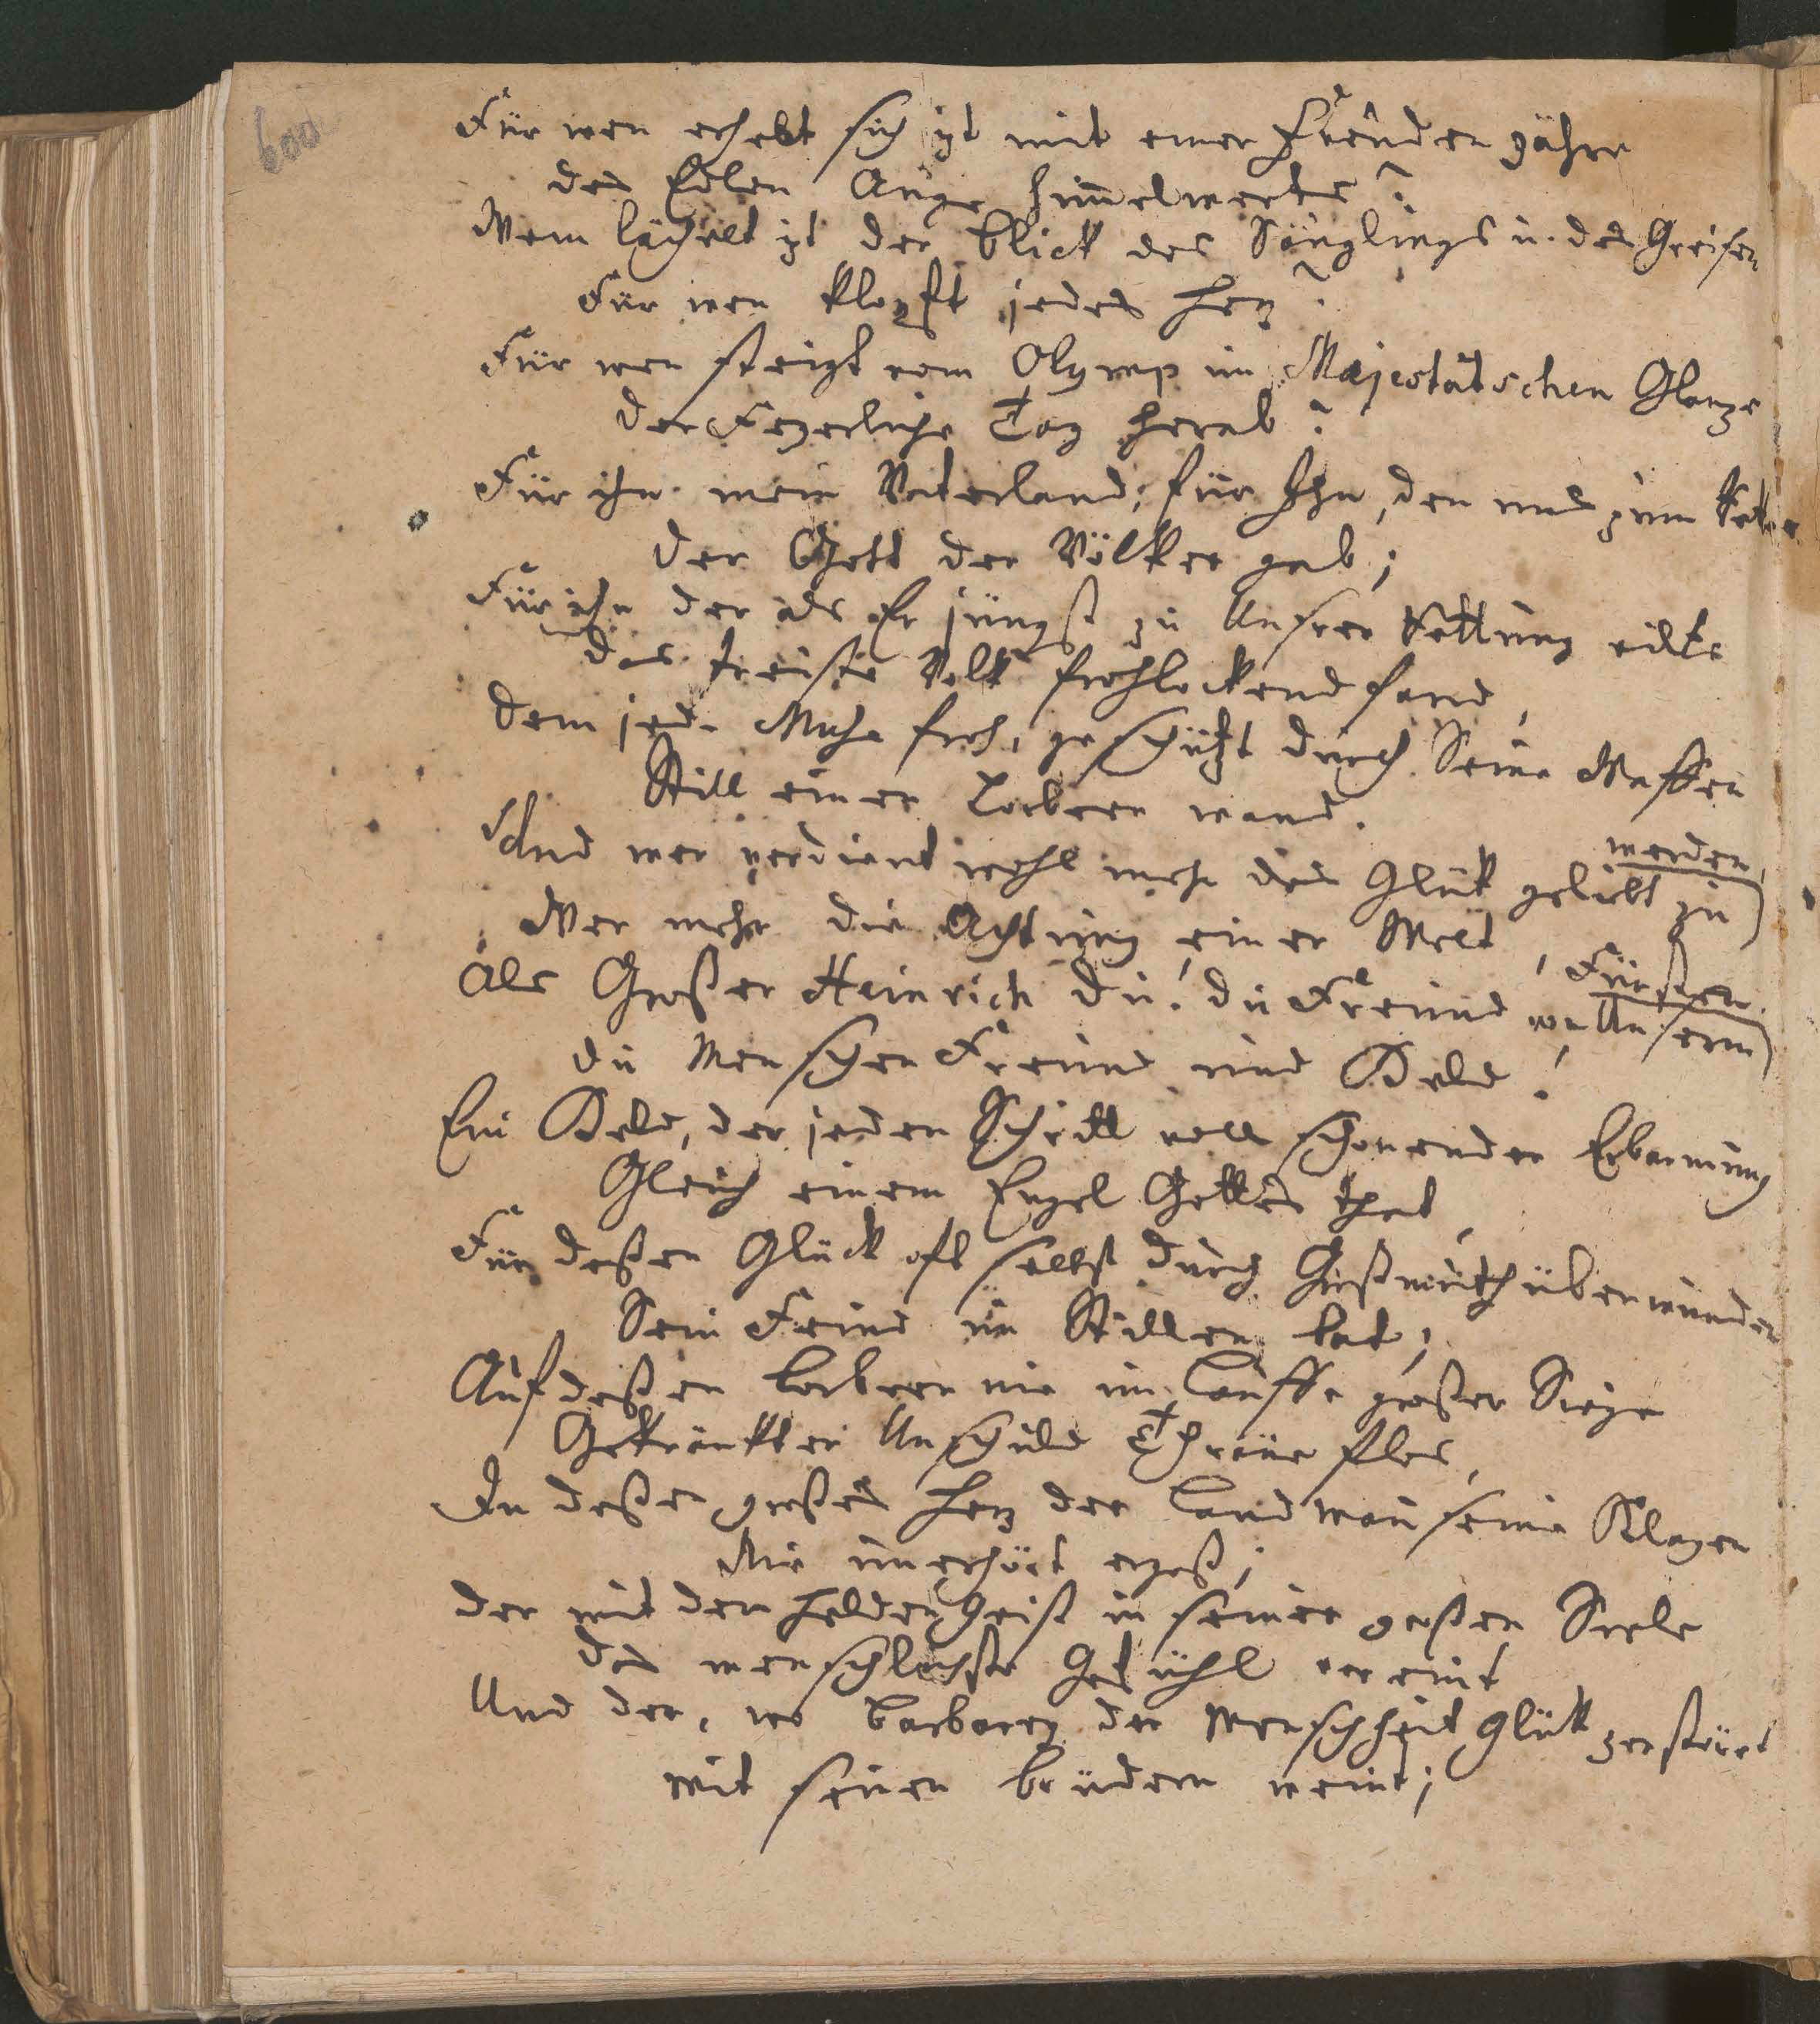 600
Für wen erhebt sich izt mit einer Freuden zähre
des Edlen Auge himmelwerts?
Wem lächelt izt der Blick des Säuglings u. des Greisen
Für wen klopft jedes Herz?
Für wen steigt vom Olymp im Majestätschen Glanze
der Feyerliche Tag herab?
Für ihn mein Vaterland; für Ihn, den uns zum Retter
der Gott der Völker gab;
Für ihn der als Er jüngst zu Unsrer Rettung eilte
das treuste Volk frohlockend fand,
dem jede Muse froh, geschützt durch Seine Waffen
Still einen Lorbeer wand.
Und wer verdient wohl mehr das Glük geliebt zu
werden,
Wer mehr die Achtung einer Welt,
als Großer Heinrich du! du Freund von Unserm
Fürsten.
du Menschen Freund und Held!
Ein Held, der jeden Schritt voll schonender Erbarmung
Gleich einem Engel Gottes that,
Für deßen Glück oft selbst durch Großmuth überwunden
Sein Feind im Stillen bat;
Auf deßen Lorbeern nie im Lauffe großer Siege
Gekränkter Unschuld Thräne flos,
In deßen großes Herz der Landman seine Klagen
Nie unerhört ergoß;
der mit dem Helden Geist in seiner großen Seele
das menschlichste Gefühl vereint
Und der, wo Barbarey der Menschheit Glük zerstört
mit seinen Brüdern weint;